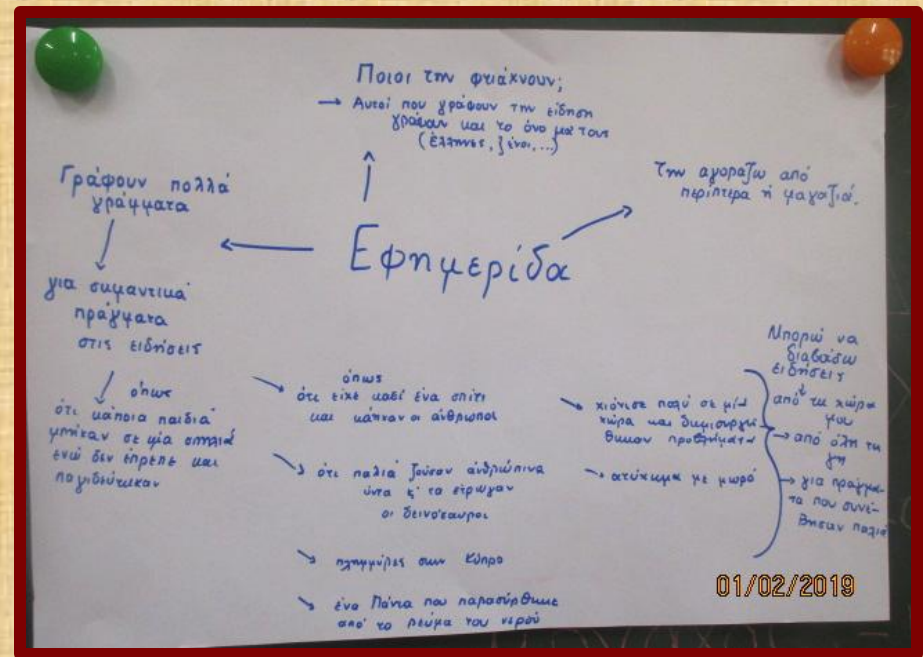 Ποιοι την φτιάχνουν;
→ Αυτοί που γράφουν την είδηση
γράφουν και το όνομά τους
(έλληνες, ξένοι,...)
Την αγοράζω από
περίπτερα ή μαγαζιά.
Εφημερίδα
Γράφουν πολλά
γράμματα
για σημαντικά
πράγματα
στις ειδήσεις
όπως
ότι κάποια παιδιά
μπήκαν σε μία σπηλιά
ενώ δεν έπρεπε και
παγιδεύτηκαν
όπως
ότι είχε καεί ένα σπίτι
και κάηκαν οι άνθρωποι
ότι παλιά ζούσαν ανθρώπινα
όντα κ' τα έτρωγαν
οι δεινόσαυροι
πλημμύρες στην Κύπρο
ένα Πάντα που παρασύρθηκε
από το ρεύμα του νερού
χιόνισε πολύ σε μία
χώρα και δημιουργή
θηκαν προβλήματα
ατύχημα με μωρό
Μπορώ να
διαβάσω
ειδήσεις
από τη χώρα
μου
→ από όλη τη
γη
για πράγμα-
τα που συνέ-
βησαν παλιά
01/02/2019